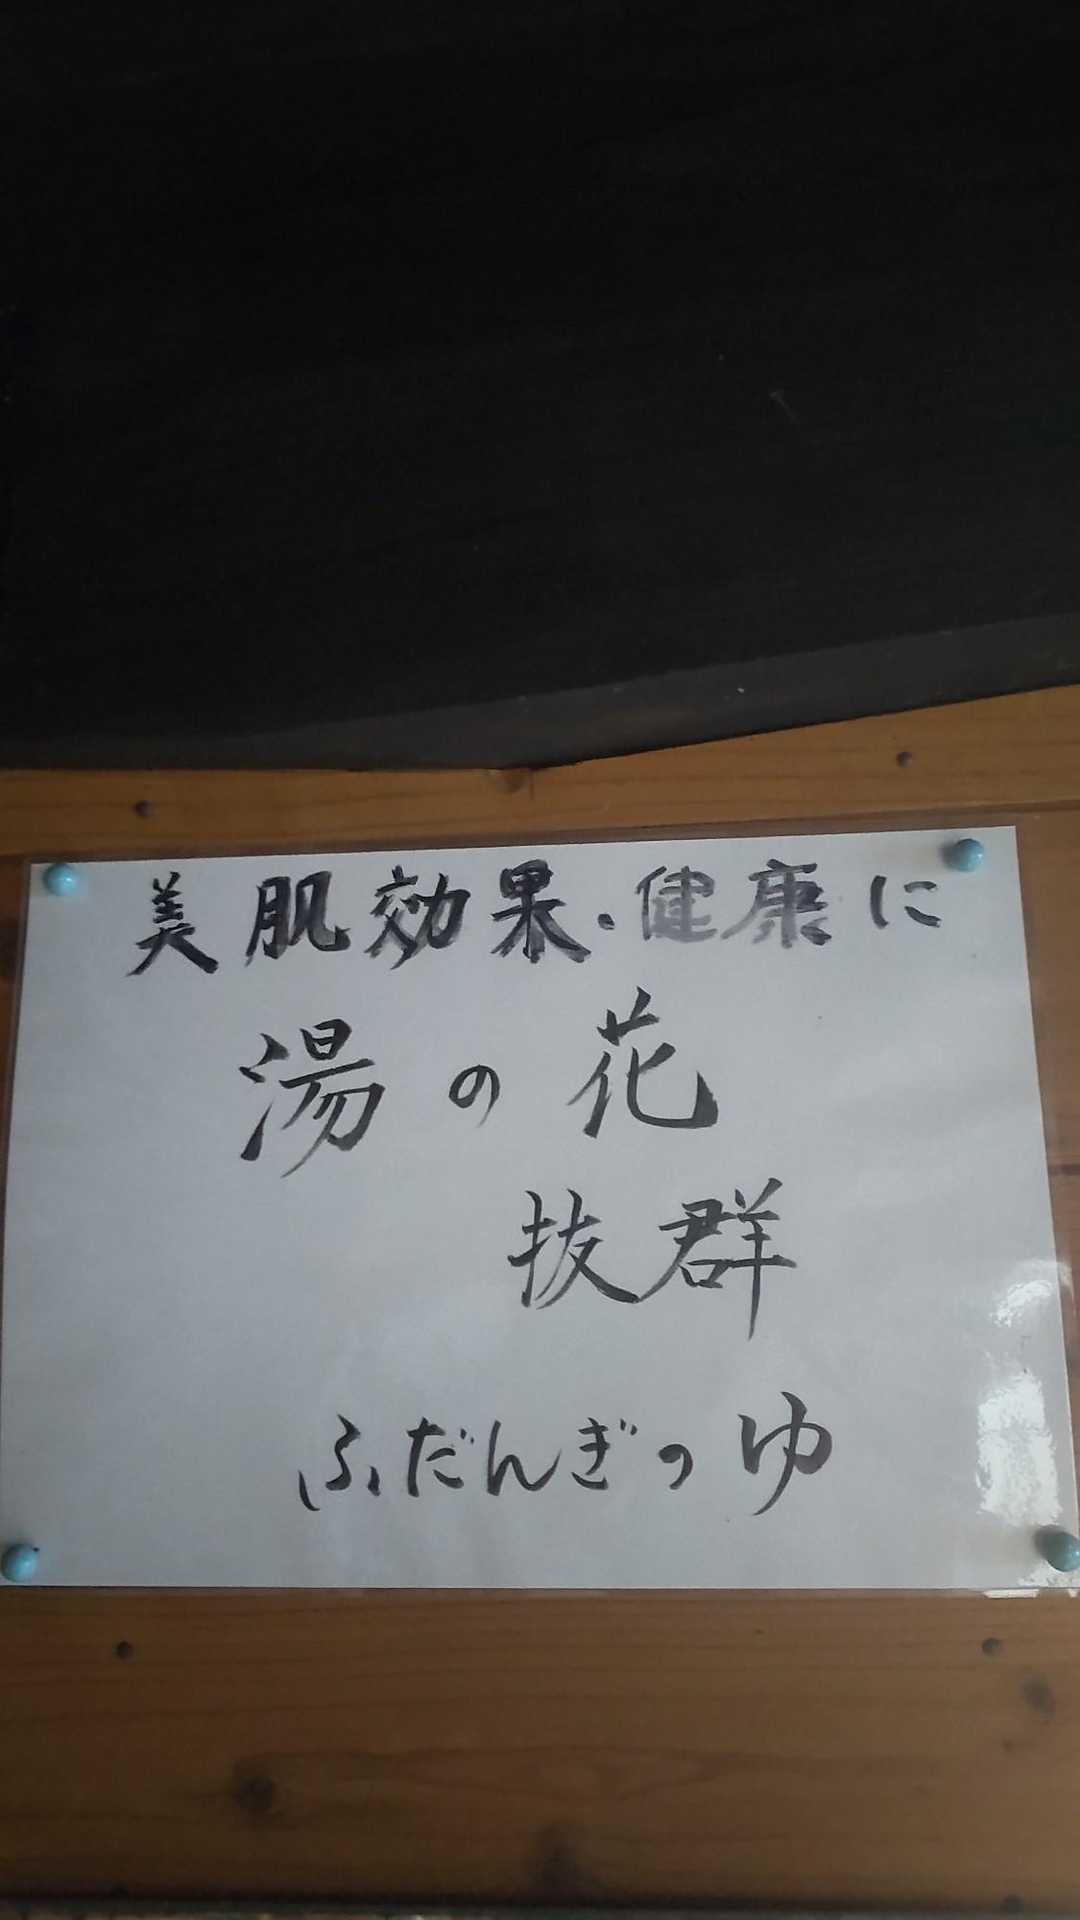 美肌効果・健康に
湯の花
抜群
ふだんぎのゆ